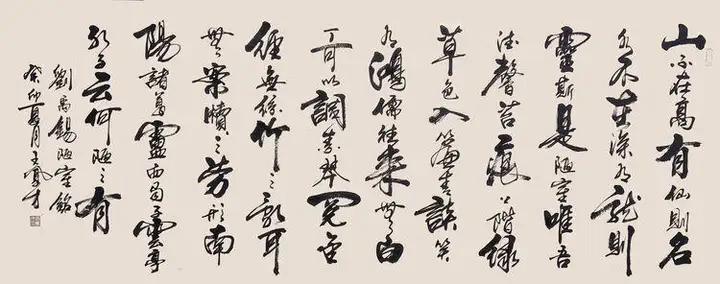 山不在高有仙則名
水不在深有龍則
靈斯是陋室唯吾
德馨苔痕上階綠
草色入簾青談笑
有鴻儒往來無白
丁可以調素琴閱金
經無絲竹之亂耳
無案牘之勞形南
陽諸葛廬西蜀子雲亭
孔子云何陋之有
劉禹錫陋室銘
癸卯夏月